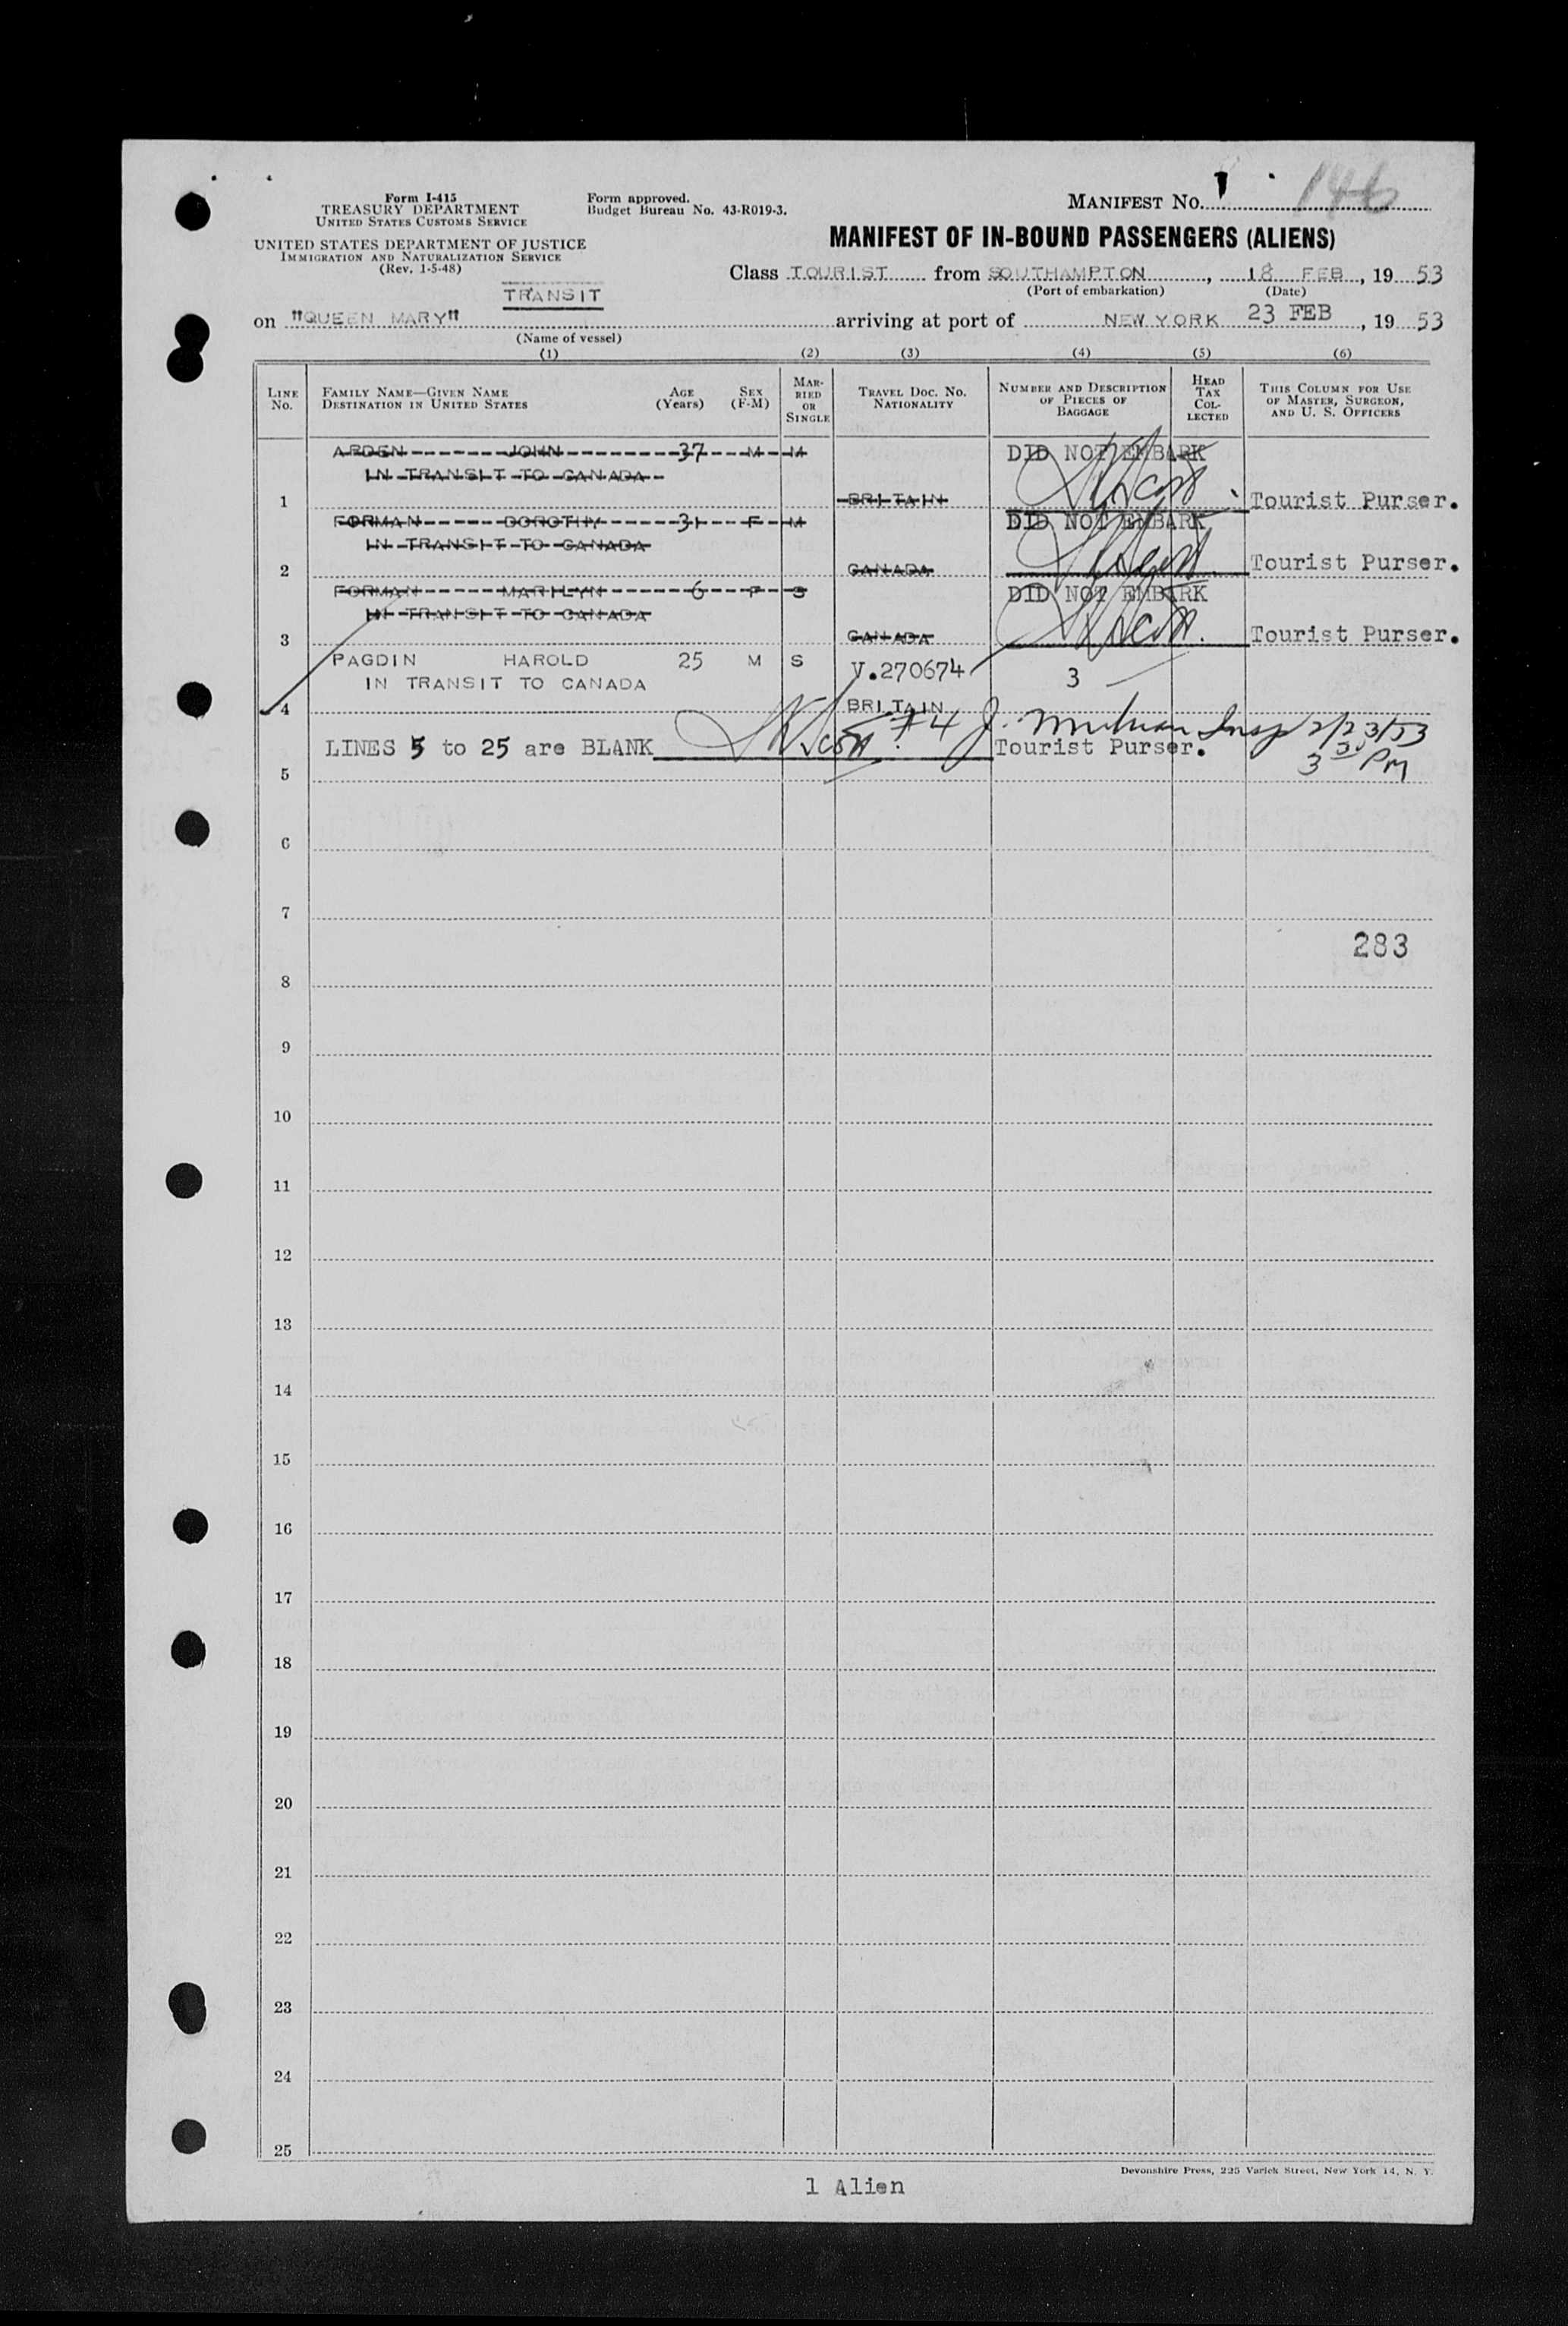 Form I-415
TREASURY DEPARTMENT
UNITED STATES CUSTOMS SERVICE
UNITED STATES DEPARTMENT OF JUSTICE
IMMIGRATION AND NATURALIZATION SERVICE
(Rev. 1-5-48)
Form approved.
Budget Bureau No. 43-R019-3.
MANIFEST No. 1 146
MANIFEST OF IN-BOUND PASSENGERS (ALIENS)
Class TOURIST from SOUTHAMPTON, 18 FEB, 19 53
(Port of embarkation) (Date)
TRANSIT
on "QUEEN MARY" arriving at port of NEW YORK 23 FEB, 19 53
(Name of vessel)
(1) (2) (3) (4) (5) (6)
LINE No. FAMILY NAME—GIVEN NAME DESTINATION IN UNITED STATES AGE (Years) SEX (F-M) MARRIED OR SINGLE TRAVEL DOC. NO. NATIONALITY NUMBER AND DESCRIPTION OF PIECES OF BAGGAGE HEAD TAX COLLECTED THIS COLUMN FOR USE OF MASTER, SURGEON, AND U. S. OFFICERS
ARDEN JOHN 37 M M DID NOT EMBARK
IN TRANSIT TO CANADA
1 BRITAIN Tourist Purser.
FORMAN DOROTHY 31 F M DID NOT EMBARK
IN TRANSIT TO CANADA
2 CANADA Tourist Purser.
FORMAN MARILYN 6 F S DID NOT EMBARK
IN TRANSIT TO CANADA
3 CANADA Tourist Purser.
PAGDIN HAROLD 25 M S V.270674 3
IN TRANSIT TO CANADA
4 BRITAIN
#4 J. 2/23/53
LINES 5 to 25 are BLANK Tourist Purser.
3 30 PM
5
6
7
283
8
9
10
11
12
13
14
15
16
17
18
19
20
21
22
23
24
25
Devonshire Press, 225 Varick Street, New York 14, N. Y.
1 Alien